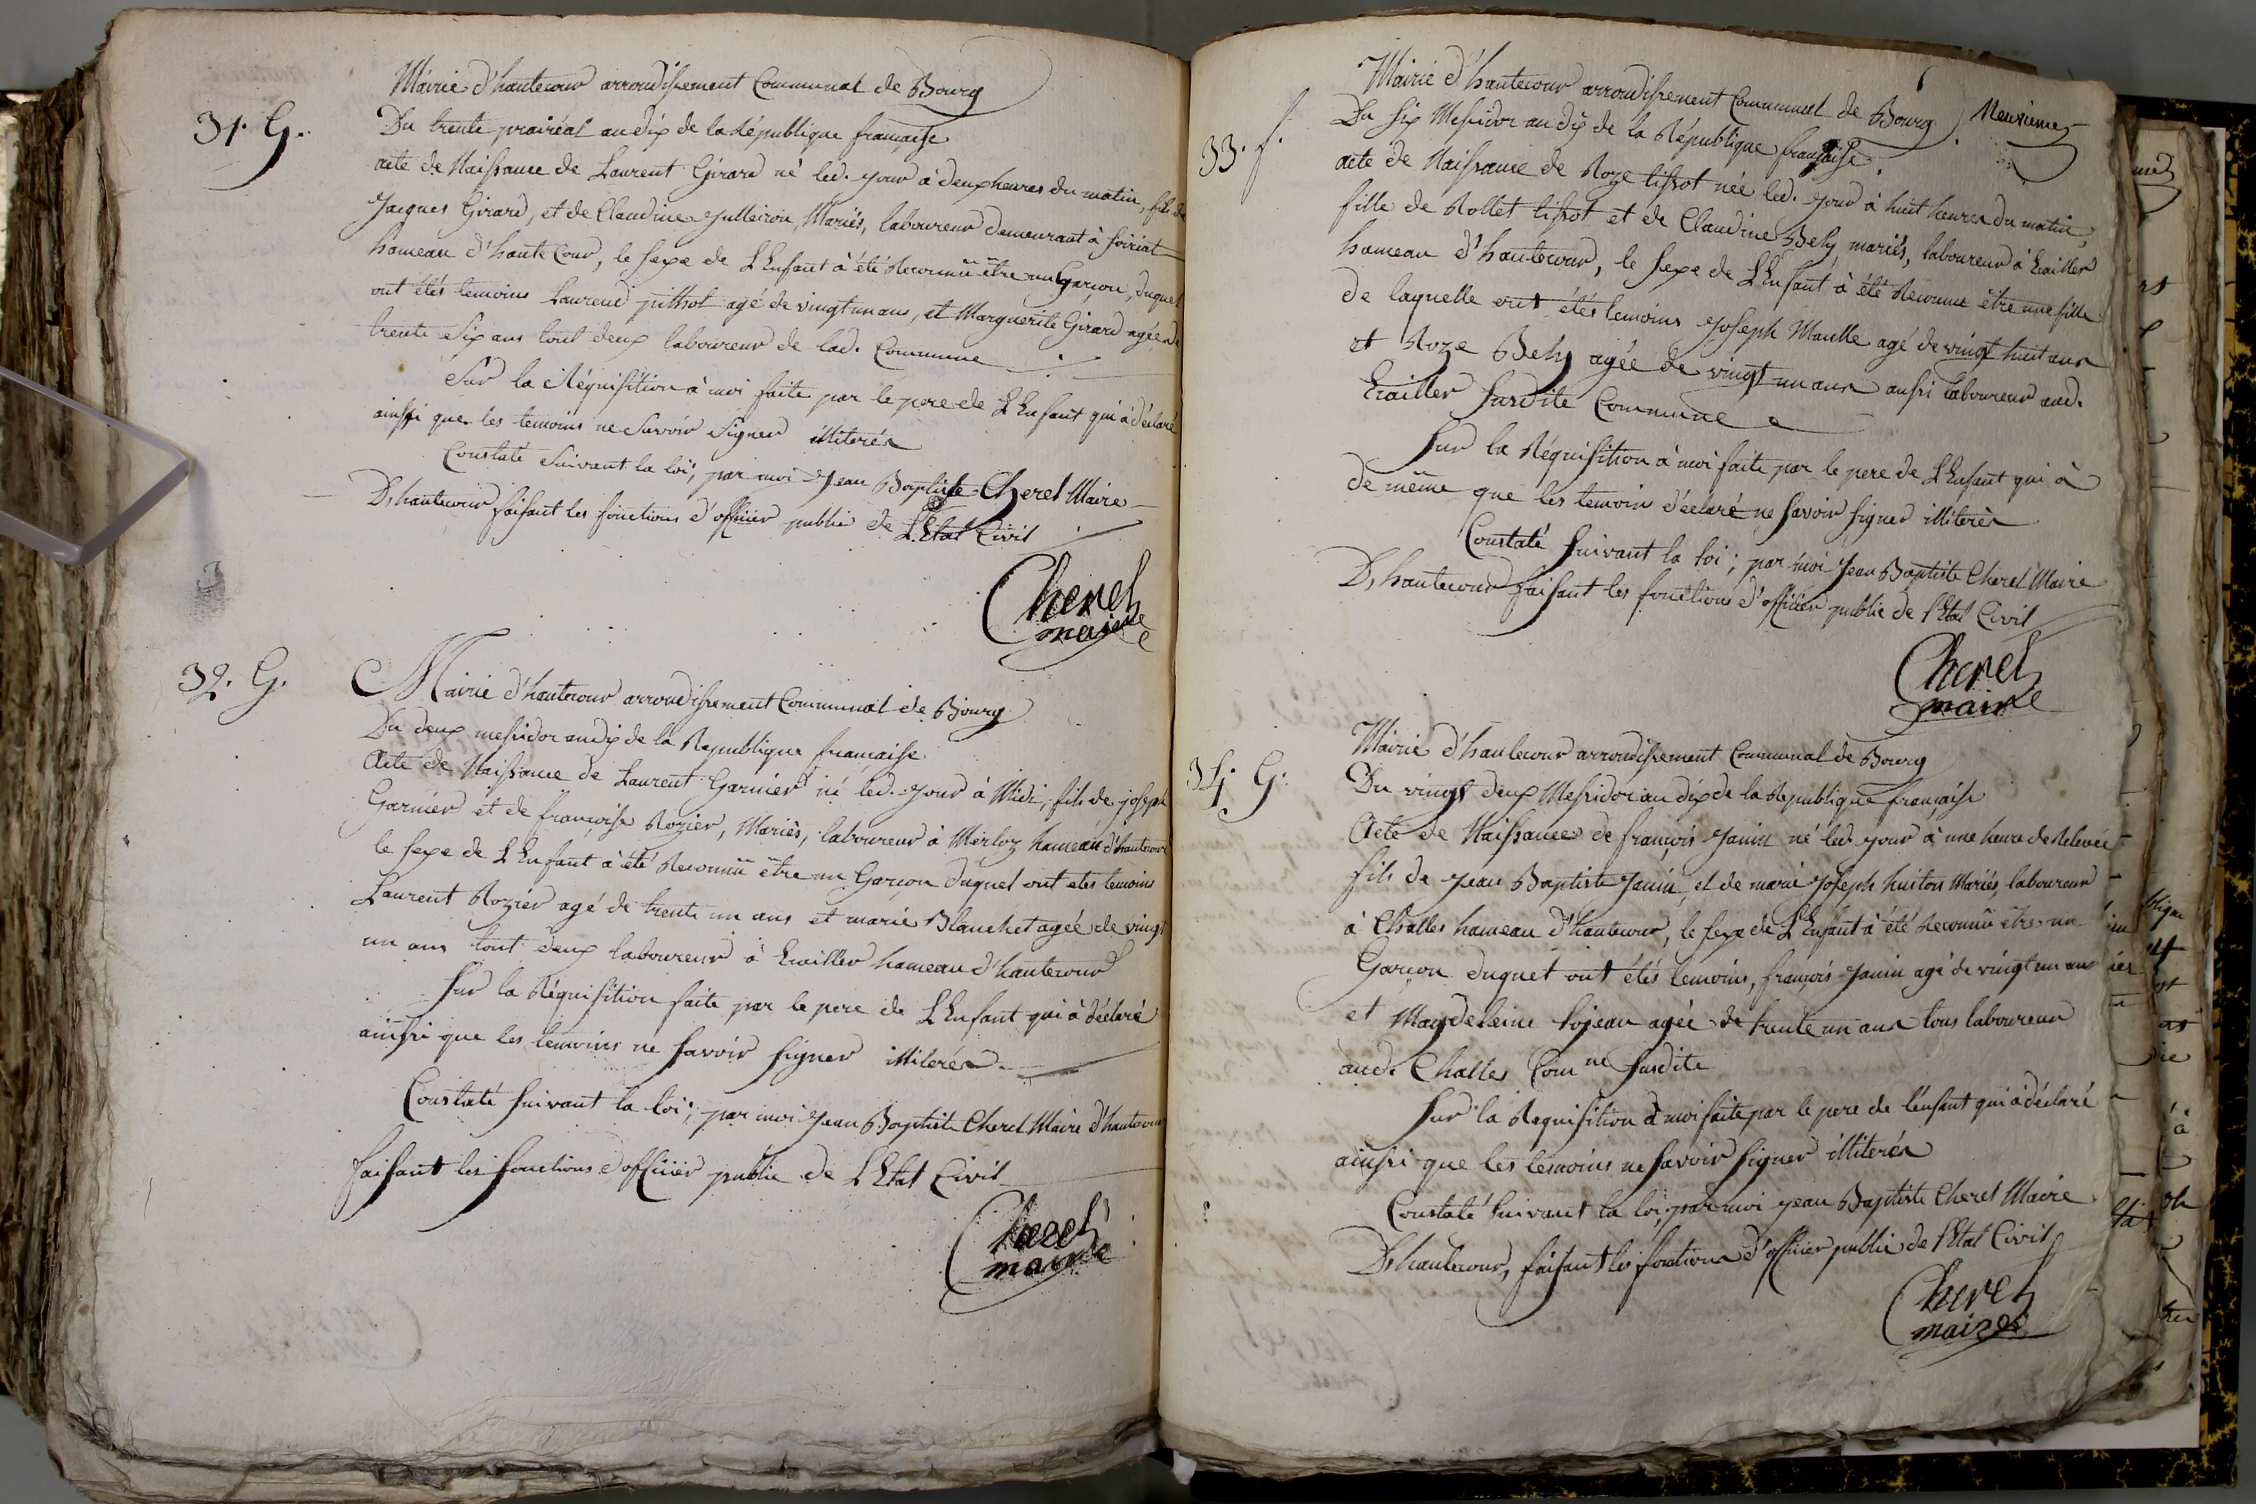 31. G.
Mairie d'hautecour arrondissement Communal de Bourg
Du trente prairéal an dix de la République française
acte de Naissance de Laurent Girard né led. jour à deux heures du matin, fils de
Jacques Girard, et de Claudine Julleiron, Mariés, laboureur demeurant à Soiriat
hameau d'haute Cour, le sexe de L'Enfant à été Reconnû être un Garçon, duquel
ont étés temoins Laurend pittiot agé de vingt un ans, et Marguerite Girard agée de
trente Six ans tout deux laboureur de lad. Commune
Sur la Réquisition à moi faite par le pere de L'Enfant qui à déclaré
ainssi que les temoins ne Savoir Signer illiterés
Constaté Suivant la loi, par moi Jean Baptiste Cherel Maire
D'hautecour faisant les fonctions d'officier public de L'Etat Civil
Cherel
maire
32. G.
Mairie d'hautecour arrondissement Communal de Bourg
Du deux messidor an dix de la Republique française
Acte de Naissance de Laurent Garnier né led. jour à Midi, fils de joseph
Garnier et de françoise Rozier, Mariés, laboureur à Merloz hameau d'hautecour
le sexe de L'Enfant à été Reconnû être un Garçon duquel ont etes temoins
Laurent Rozier agé de trente un ans et marie Blanchet agée de vingt
un ans tout deux laboureur à Eraillor hameau d'hautecour
Sur la Réquisition faite par le pere de L'Enfant qui à déclaré
ainssi que les temoins ne savoir signer illiterés
Constaté suivant la loi; par moi Jean Baptiste Cherel Maire d'hautecour
faisant les fonctions d'officier public de L'Etat Civil
Cherel
maire
Neuvieme
33. f.
Mairie d'hautecour arrondissement Communal de Bourg
Du six Messidor an dix de la République française
acte de Naissance de Roze tissot née led. jour à huit heures du matin,
fille de Rollet tissot et de Claudine Bely, mariés, laboureur à Eraillor
hameau d'hautecour, le sexe de L'Enfant à été Reconnu être une fille
de laquelle ont étés temoins Joseph Maulle agé de vingt huit ans
et Roze Bely agée de vingt un ans aussi laboureur aud.
Eraillor susdite Commune
Sur la Réquisition à moi faite par le pere de L'Enfant qui à
de même que les temoin déclaré ne savoir signer illiterés
Constaté suivant la loi; par moi Jean Baptiste Cherel Maire
D'hautecour faisant les fonctions d'officier public de l'Etat Civil
Cherel
maire
34. G.
Mairie d'hautecour arrondissement Communal de Bourg
Du vingt deux Messidor an dix de la République française
Acte de Naissance de françois Janin né led. jour à une heure de Relevée
fils de Jean Baptiste Janin, et de marie Joseph huiton Mariés, laboureur
à Challes hameau d'hautecour, le sexe de L'Enfant à été Reconnû être un
Garçon duquel ont étés temoins, françois Janin agé de vingt un ans
et Magdeleine lojean agée de trente un ans tous laboureur
aud. Challes Com ne susdite
Sur la Requisition à moi faite par le pere de l'enfant qui à déclaré
ainssi que les temoins ne savoir signer illiterés
Constaté suivant la loi, par moi Jean Baptiste Cherel Maire
D'hautecour, faisant les fonctions d'officier public de l'Etat Civil
Cherel
maire